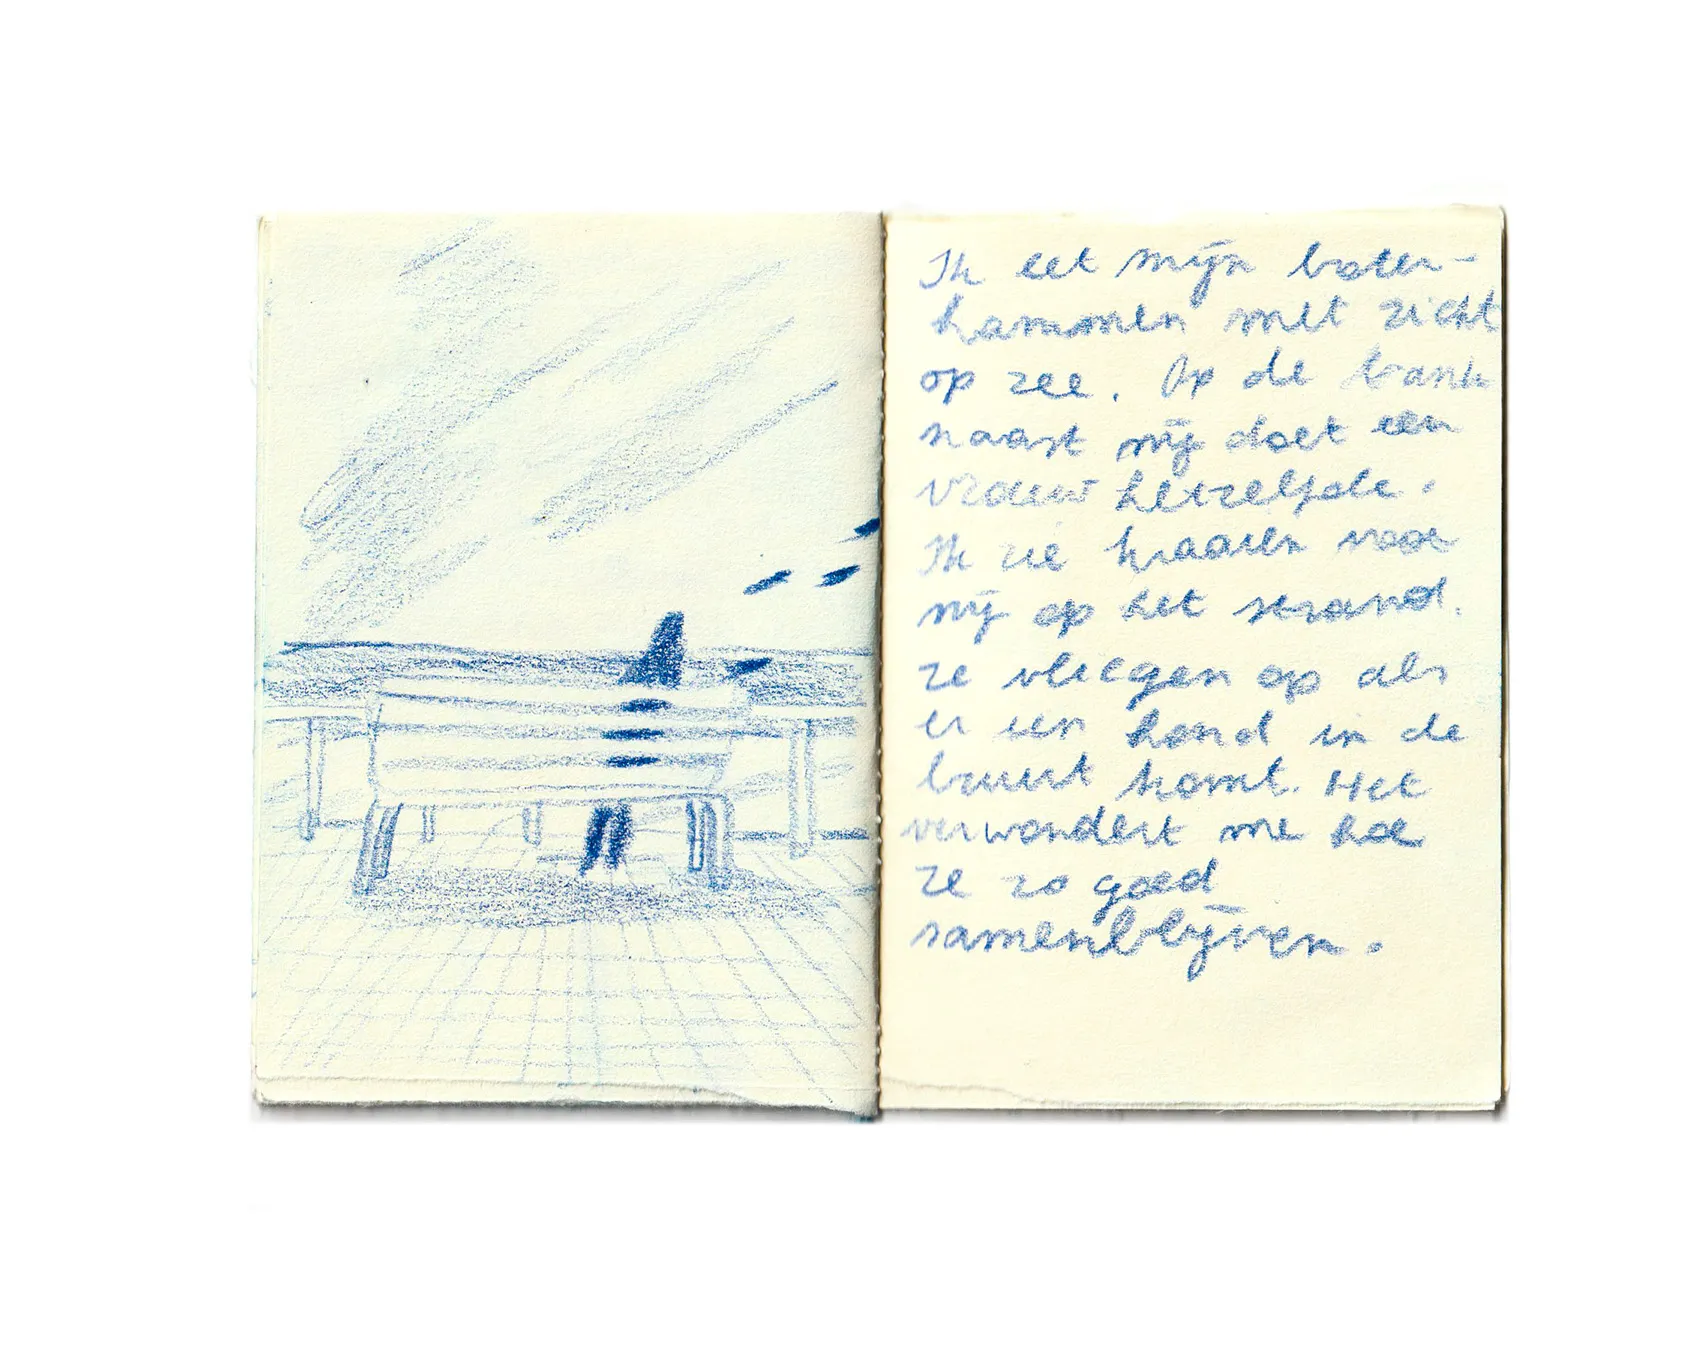 Ik eet mijn boter-
hammen met zicht
op zee. Op de bank
naast mij doet een
vrouw hetzelfde.
Ik zie kraaien voor
mij op het strand.
ze vliegen op als
er een hond in de
buurt komt. Het
verwondert me hoe
ze zo goed
samenblijven.